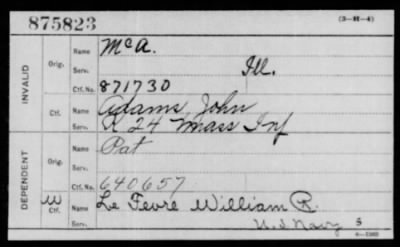 875823 (3-H-4)
INVALID
Orig. Name McA.
Serv. Ill.
Ctf. No. 871730
Ctf. Name Adams, John
Serv. K 24 Mass Inf
DEPENDENT
Orig. Name Pat
Serv.
Ctf. No. 640657
W Ctf. Name Le Fevre William R.
Serv. U.S. Navy 5